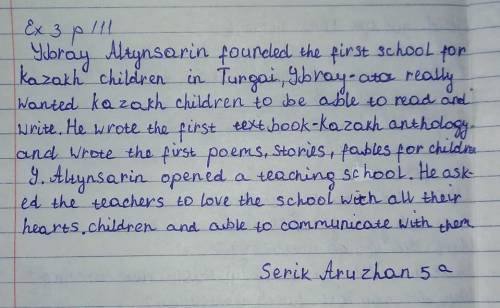 Ex 3 p 111
Ybray Altynsarin founded the first school for
kazakh children in Turgai, Ybray-ata really
wanted kazakh children to be able to read and
write. He wrote the first textbook-kazakh anthology
and wrote the first poems, stories, fables for children
Y. Altynsarin opened a teaching school. He ask-
ed the teachers to love the school with all their
hearts. children and able to communicate with them
Serik Aruzhan 5 a